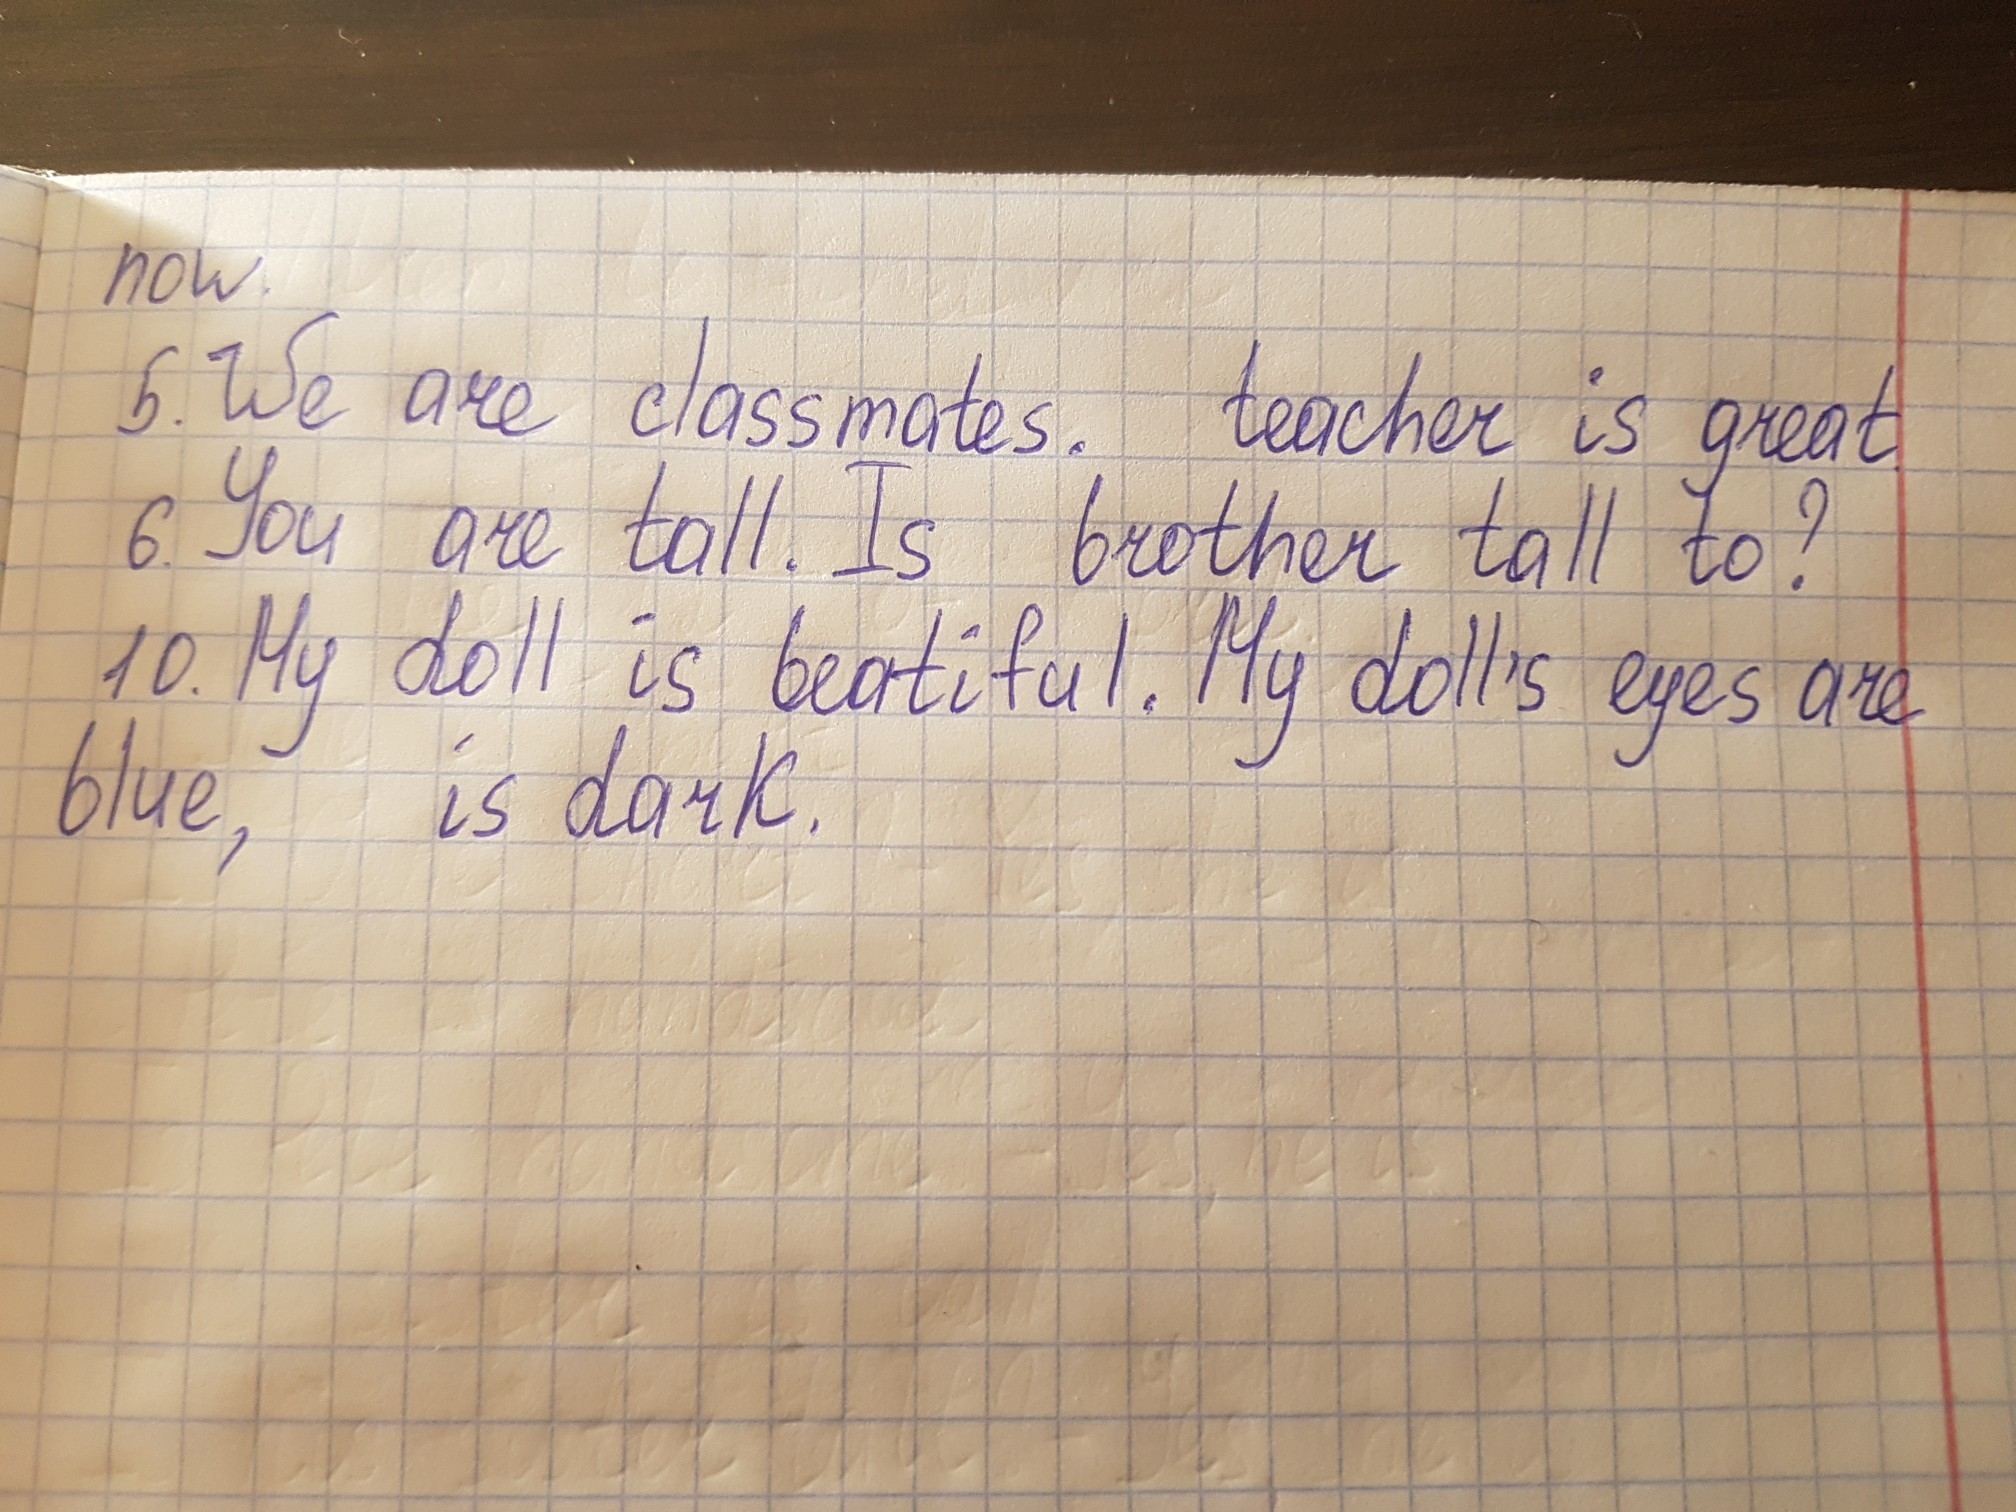 now.
5. We are classmates. teacher is great.
6. You are tall. Is brother tall to?
10. My doll is beatiful. My doll's eyes are
blue, is dark.